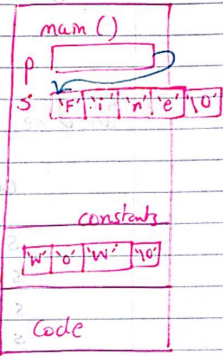 main()
p
s 'F' 'i' 'n' 'e' '\0'
constants
'W' 'o' 'W' '\0'
Code